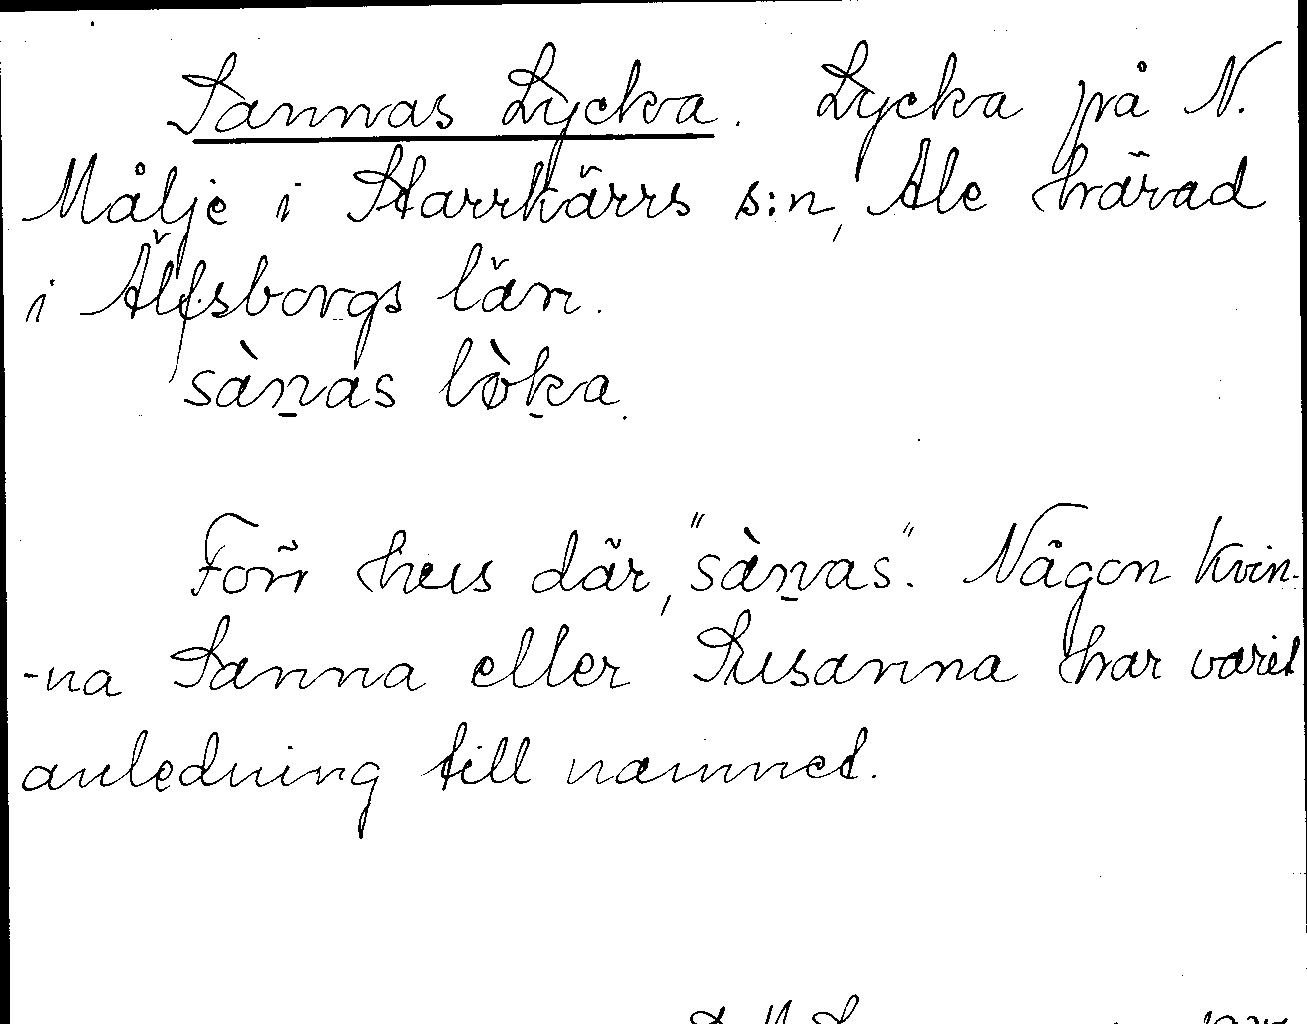 Sannas Lycka. Lycka på N.
Målje i Starrkärrs s:n, Ale härad
i Älfsborgs län.
sàn̲as lø̀k̲a.
Förr hus där, "sàn̲as". Någon kvin-
-na Sanna eller Susanna har varit
anledning till namnet.